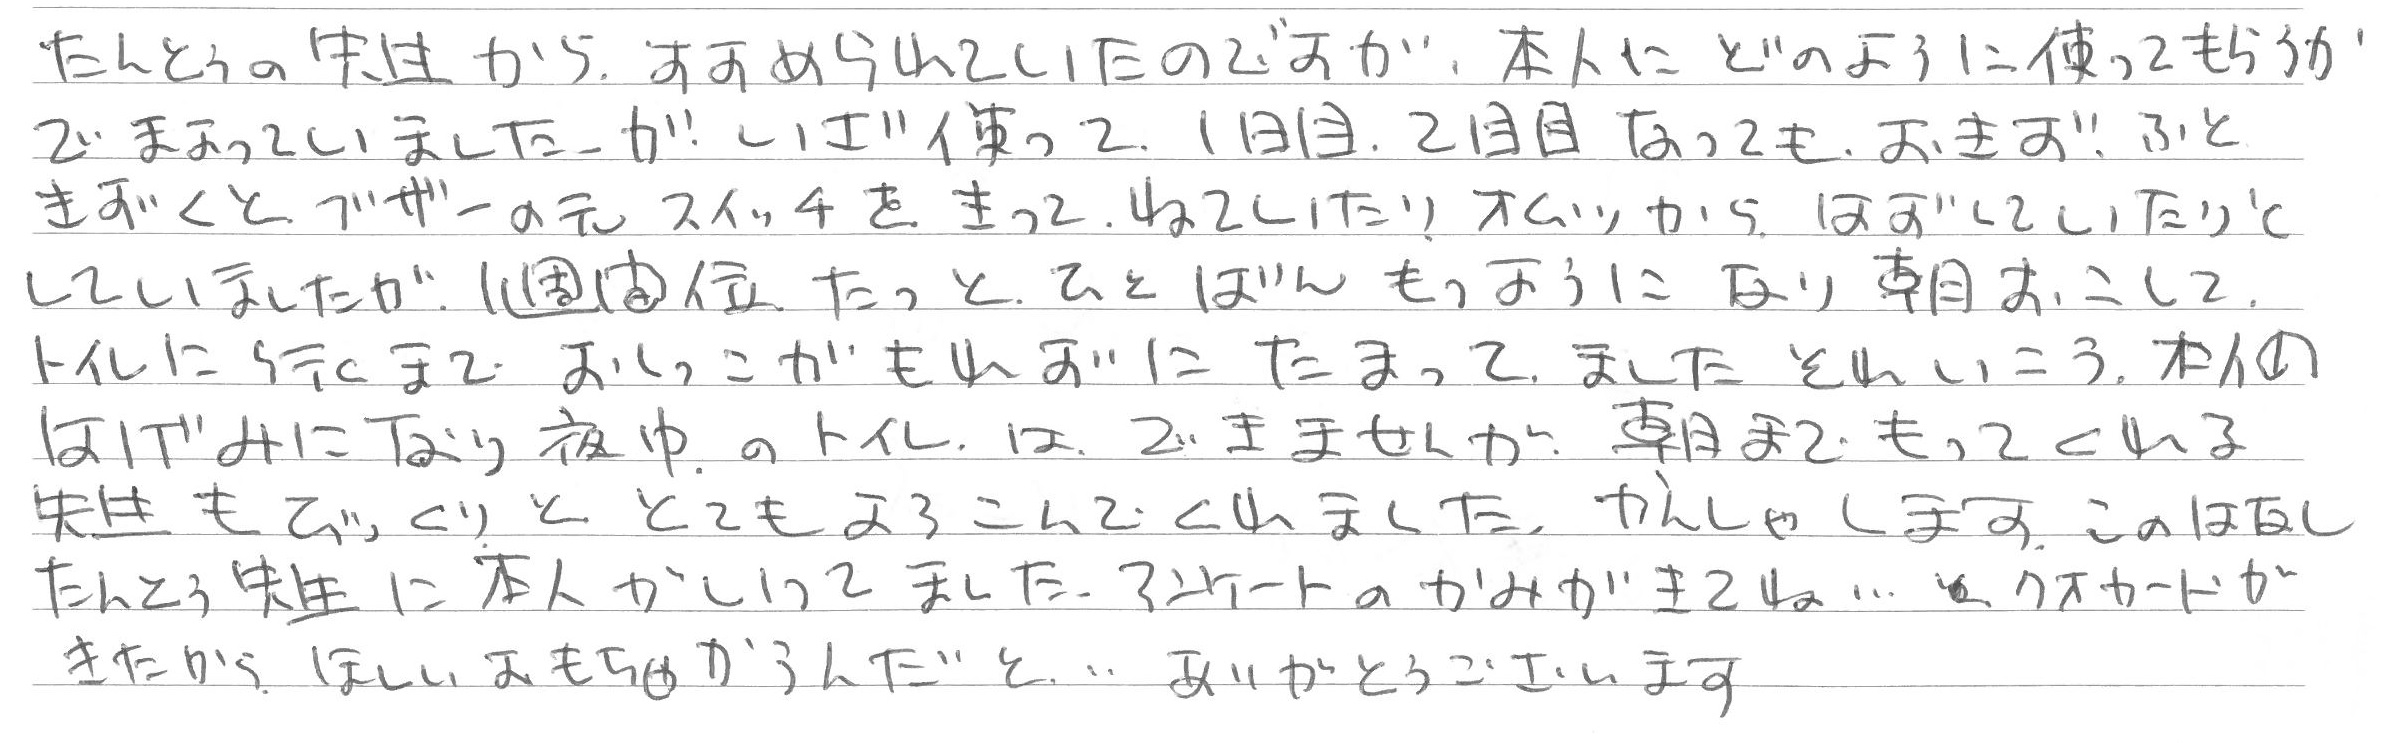 たんとうの先生から、すすめられていたのですが、本人にどのように使ってもらうか
でまよっていましたーが、いざ使って、1日目、2日目なっても、おきず!!ふと
きずくとブザーの元スイッチをきって、ねていたりオムツからはずしていたりと
していましたが、1週間位たっと、ひとばんもつようになり朝おこして、
トイレに行くまでおしっこがもれずにたまって、ましたそれいこう、本人の
はげみになり夜中のトイレはできませんが、朝までもってくれる
先生もびっくりととてもよろこんでくれました、かんしゃします。このはなし
たんとう先生に本人がいってました。アンケートのかみがきてね…とクオカードが
きたから、ほしいおもちゃかうんだと…ありがとうございます